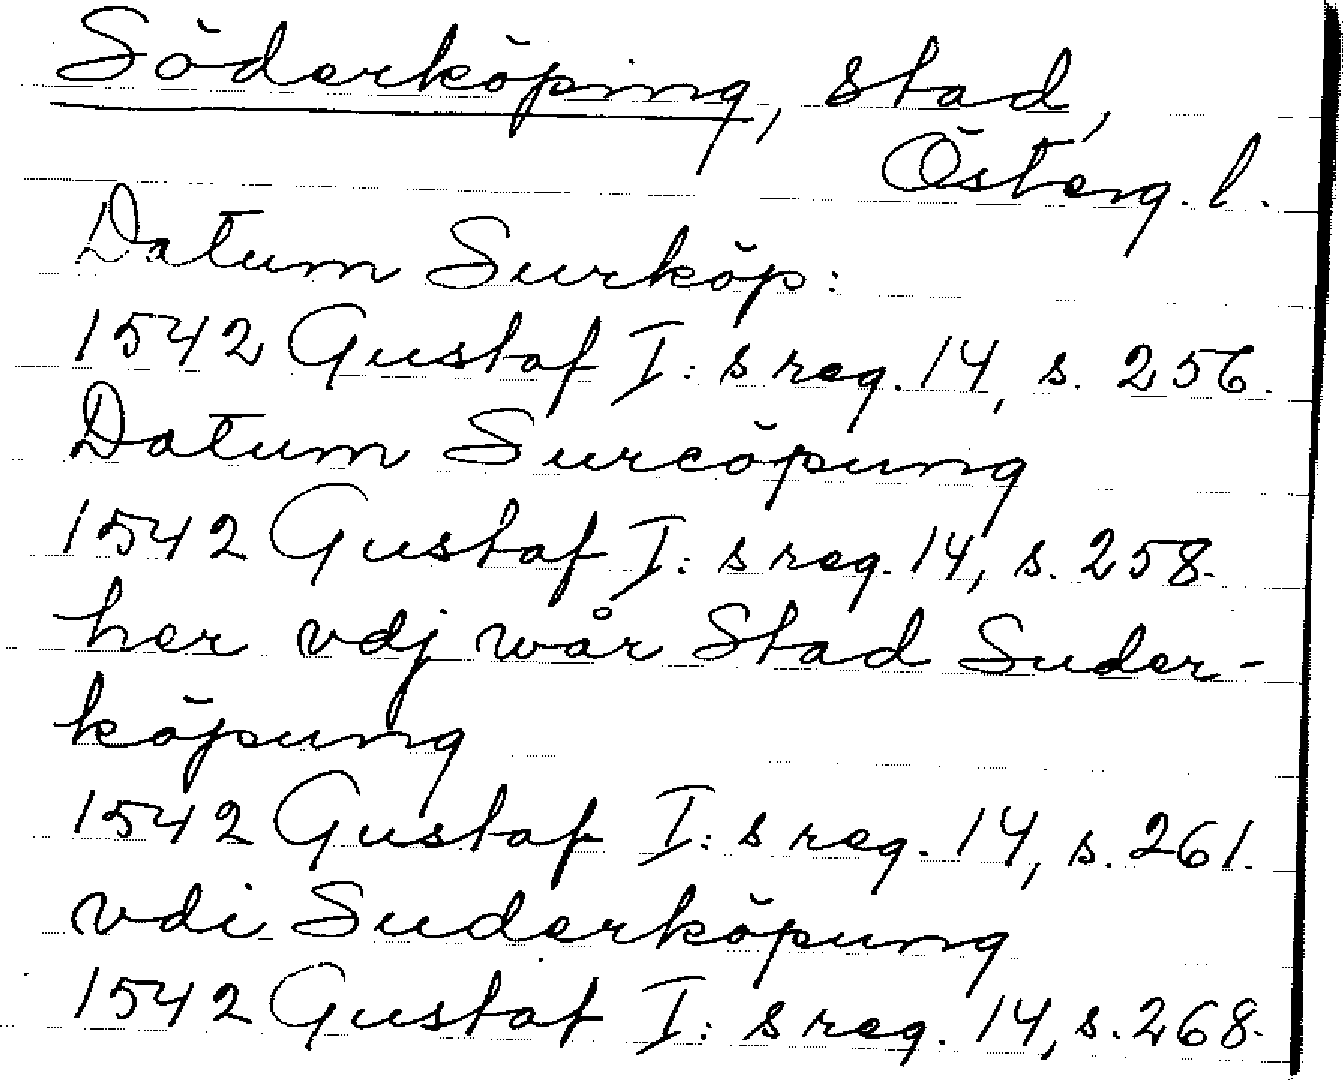 Söderköping, stad,
Österg. l.
Datum Surköp:
1542 Gustaf I: s reg. 14, s. 256.
Datum Surcöpung
1542 Gustaf I: s reg. 14, s. 258.
her vdj wår Stad Suder-
köpung
1542 Gustaf I: s reg. 14, s. 261.
vdi Suderköpung
1542 Gustaf I: s reg. 14, s. 268.